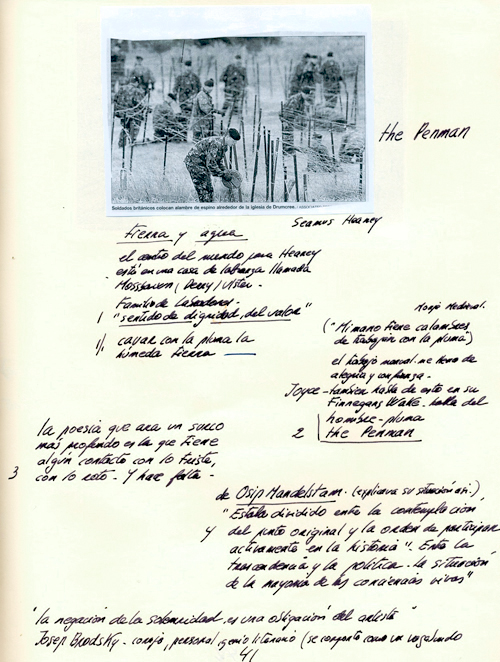 Soldados británicos colocan alambre de espino alrededor de la iglesia de Drumcree.
the Penman
Seamus Heaney
tierra y agua
el centro del mundo para Heaney
está en una casa de labranza llamada
Mossbawn / Derry / Ulster -
Familia de labradores -
1 "sentido de dignidad, del valor"
cavar con la pluma la
húmeda tierra
Monje Medieval.
("Mi mano tiene calambres
de trabajar con la pluma")
el trabajo manual me llena de
alegría y confianza -
Joyce - también habla de esto en su
Finnegans Wake. habla del
hombre - pluma
2 the Penman
la poesía que ara un surco
más profundo es la que tiene
algún contacto con lo triste,
3 con lo roto - Y hace falta -
de Osip Mandelstam. (explicaba su situación así.)
"Estaba dividido entre la contemplación
4 del punto original y la orden de participar
activamente en la historia". Entre la
trascendencia y la política - la situación
de la mayoría de las conciencias vivas"
"la negación de la solemnidad, es una obligación del artista"
Josep Brodsky - coraje, personal, genio literario (se comporta como un vagabundo
41